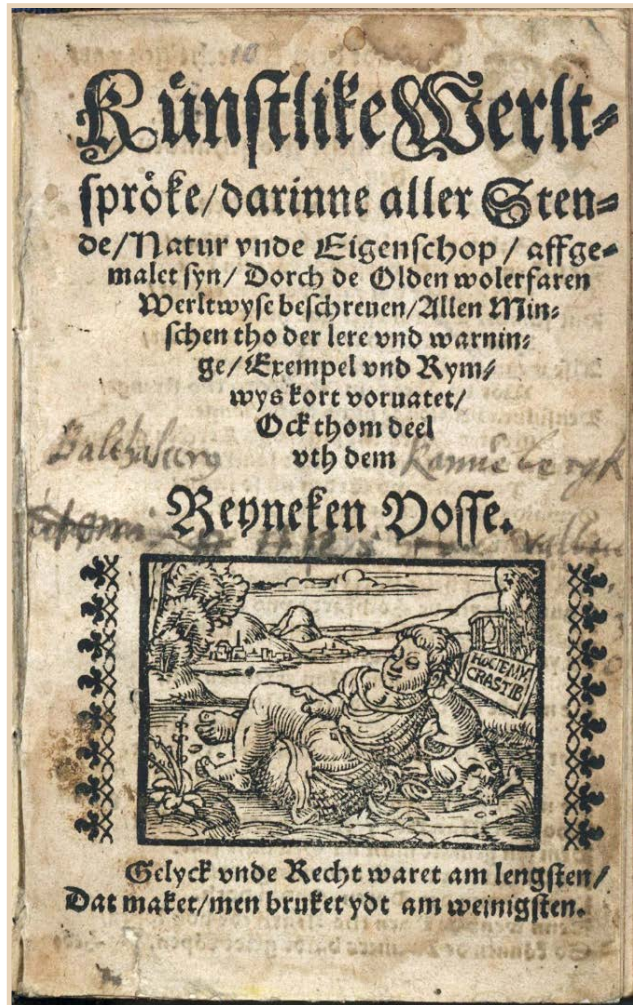 Künstlike Werlt-
spröke/darinne aller Sten-
de/Natur vnde Eigenschop/ affge-
malet syn/ Dorch de Olden wolerfaren
Werltwyse beschreuen/Allen Min-
schen tho der lere vnd warnin-
ge/Exempel vnd Rym-
wys kort voruatet/
Ock thom deel
vth dem
Reyneken Vosse.
CRASTIB
Gelyck vnde Recht waret am lengsten/
Dat maket/men bruket ydt am weinigsten.